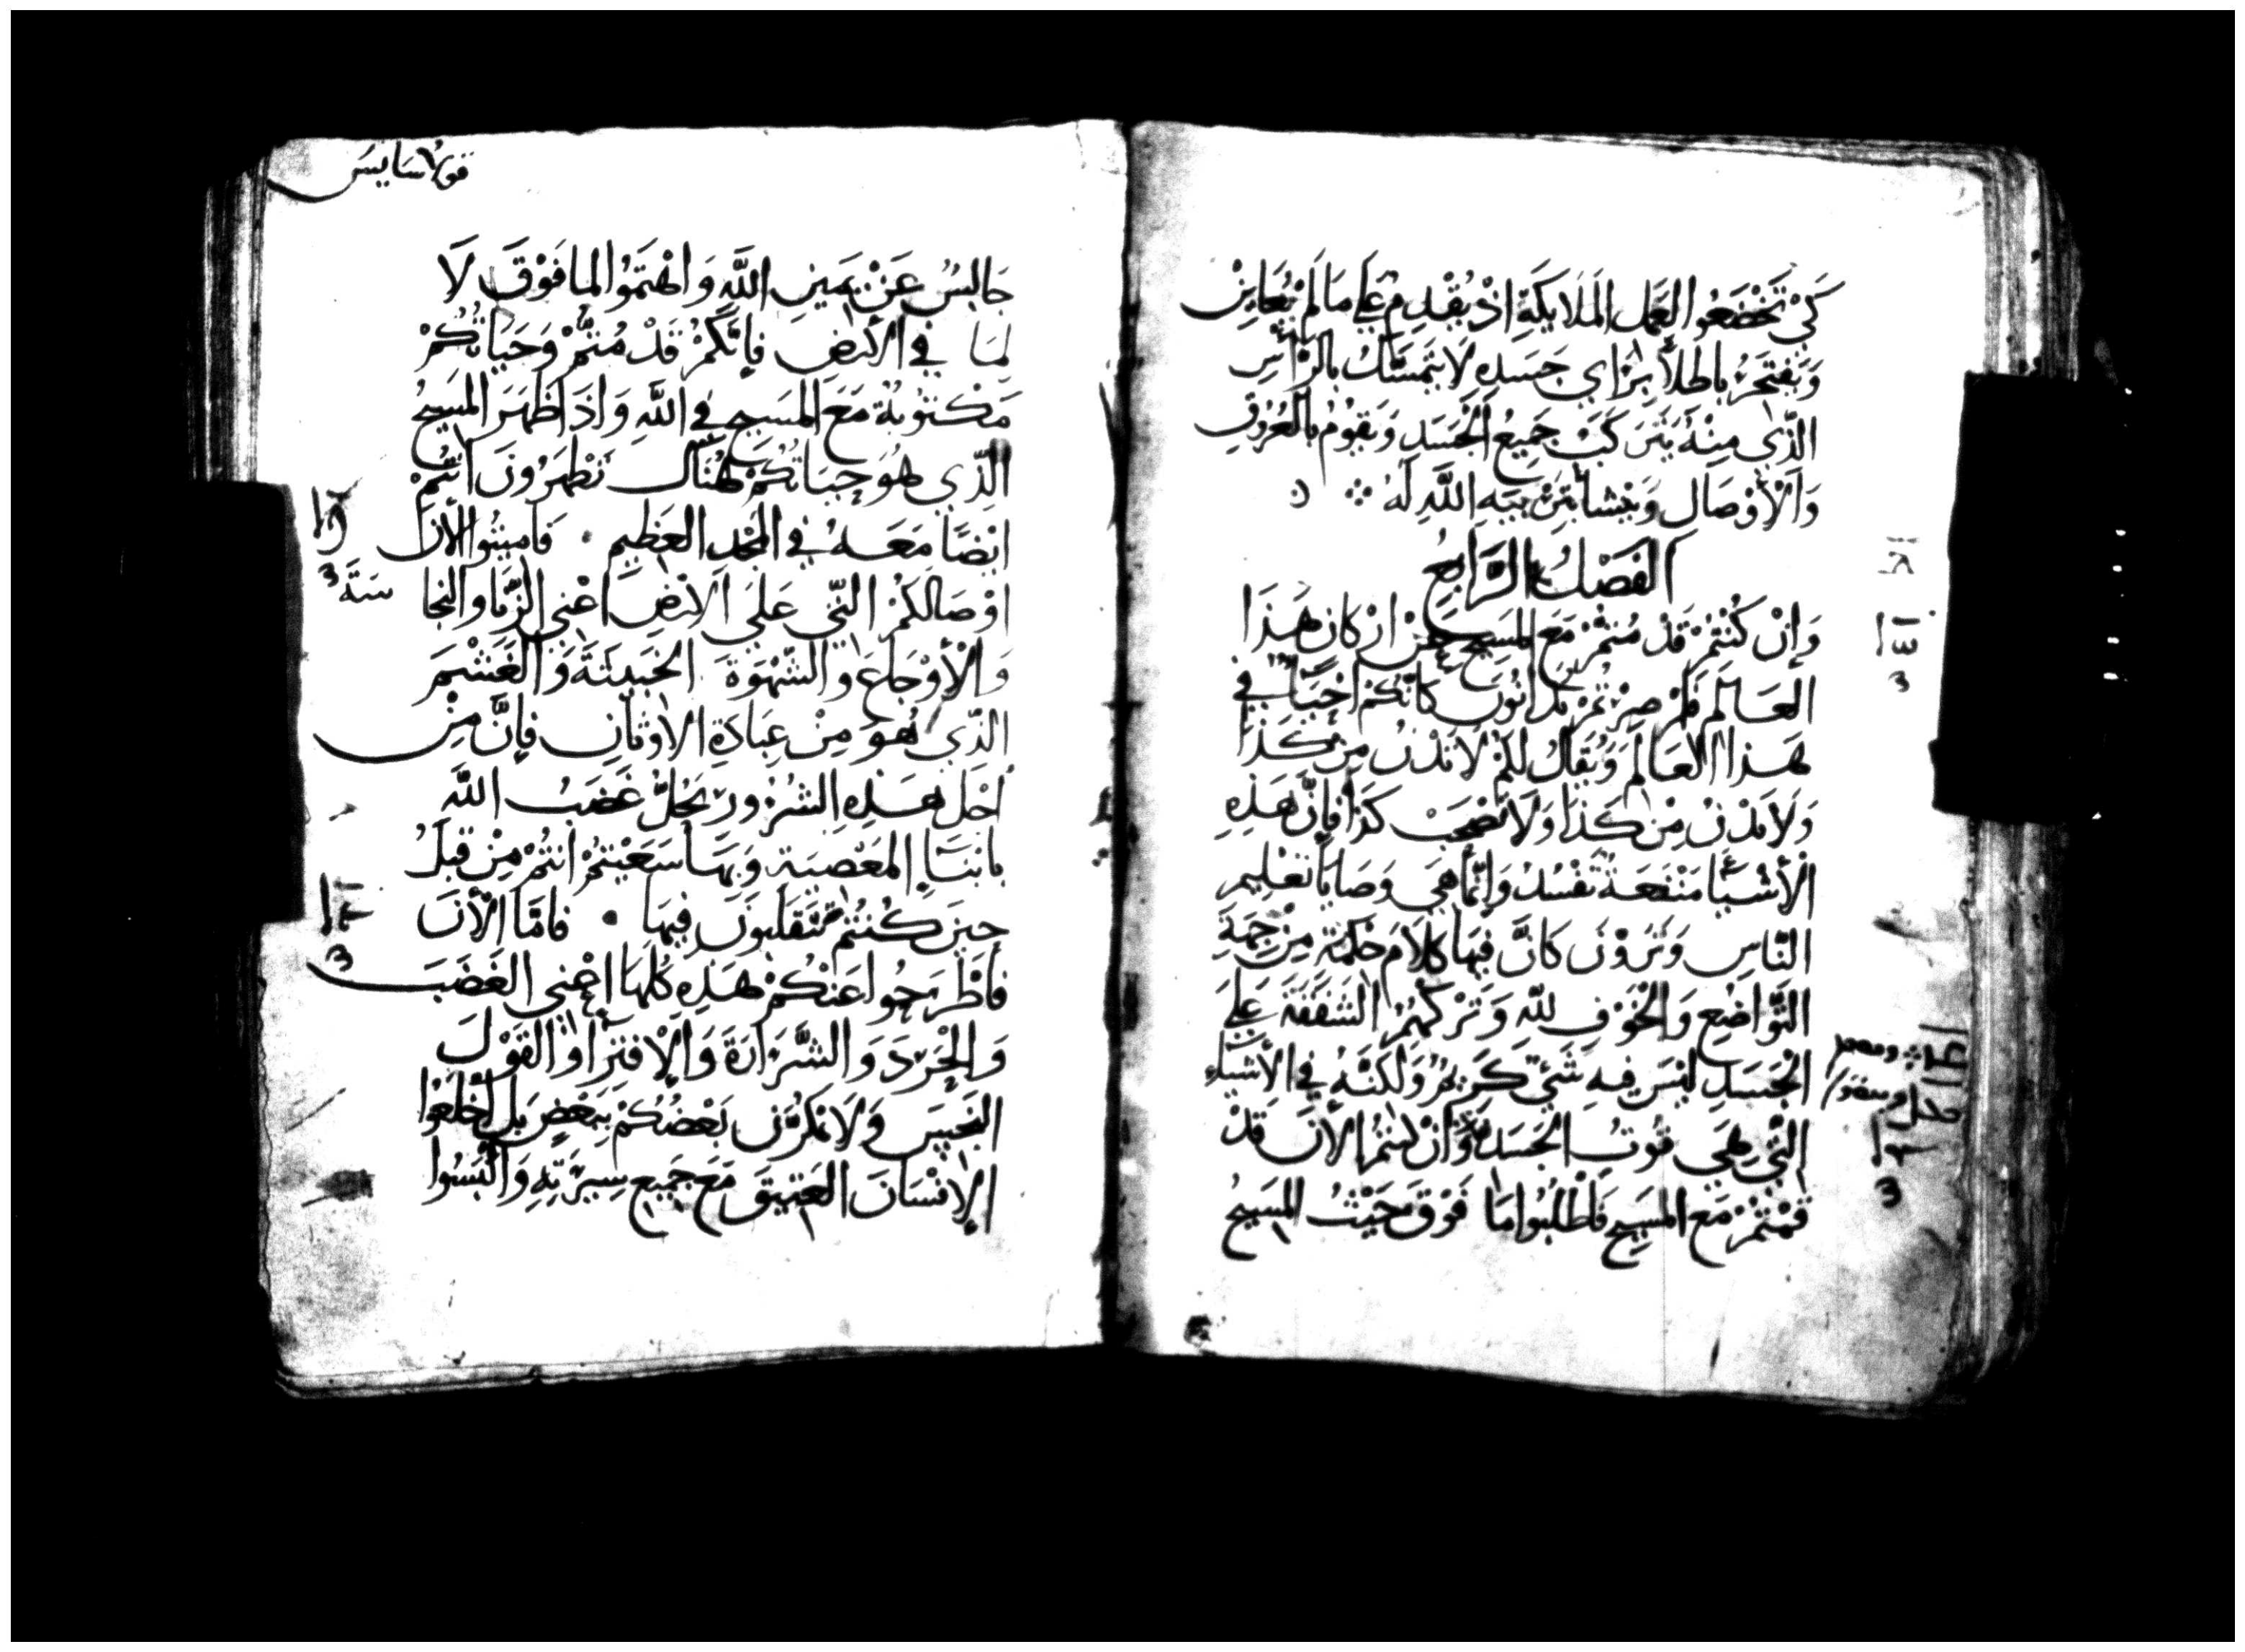 كَيْ تَخْضَعُوا لعَمَل المَلَايكَةِ اذْ يُقْدِم عَلَى مَا لَمْ يُعَايِنْ
وَيَفتَخَرُ باطلاً بِرَاي جَسَدِهِ لَا يَتَمَسَّكُ بِالرَّأسِ
الَّذِي مِنْهُ يَتَرَكَّبُ جَمِيعُ الْجَسَدِ وَيَقُومُ بِالعُرُوقِ
وَالْأوْصَالِ وَيَنْشَا بتَرْبيَةِ اللَّهِ لَهُ ܀
الفَصْلُ الرَّابِعُ
وَإنْ كُنْتُمْ قَدْ مُتُّمْ مَعَ المَسِيحِ عَنْ اركان هَذَا
العَالَم فَلِمَ صِرْتُمْ تُدَانُونَ كَانَّكُمْ احْيَاً فِي
هَذا العَالَم وَيُقَالُ لكُمْ لَا تَدْنُ مِنْ كَذَا
وَلَا تَدْنُ مِنْ كَذَا وَلَا تَصْحَبْ كَذَا فَإنَّ هَذِهِ
الْأشْيَآ مَنْفَعَةٌ تَفْسُدُ وَانَّمَا هِيَ وَصَايَا تَعْلِيمِ
النَّاسِ وَتَرَوْنَ كَانَّ فِيهَا كَلَامَ حِكْمَة مِنْ جِهَةِ
التَّوَاضُعِ وَالْخَوْفِ للَّهِ وَتَرْكِهُمْ الشَفَقَةَ عَلَى
الْجَسَدِ لَيْسَ فِيهِ شَيْ كَرِيْم وَلَكِنَّهُ فِي الْأشْيَاءِ
الَّتِي هِيَ قُوتُ الْجَسَد وَانْ كنتُمُ الْأنَ قَدْ
قُمْتُمْ مَعَ المَسِيحِ فَاطْلُبُوا مَا فَوْقَ حَيْثُ المَسِيحُ
قولاسايس
جَالِسُ عَنْ يَمِينِ اللَّهِ وَاهْتَمُّوا لما فَوْقَ لَا
لمَا فِي الْأرْضِ فَإنَّكُمْ قَدْ مُتُّمْ وَحَيَاتُكُمْ
مَكْتُوبَةٌ مَعَ المَسِيحِ فِي اللَّهِ وَاذَا ظَهَرَ المَسِيحُ
الَّذِي هُوَ حَيَاتُكُمْ هُنَاكَ تَظْهَرُونَ انْتُمْ
ايْضًا مَعَهُ فِي المَجْدِ العَظِيمِ . فَامِيتُوا الْأنَ
اوْصَالَكُمْ الَّتِي عَلَى الْارْضِ اعْنِي الزِّنَا والنجا
سَةَ
وَالْأوْجَاعَ وَالشَّهْوَةَ الخَبِيثَةَ وَالغَشْمَ
الَّذِي هُوَ مِنْ عِبَادَةِ الْاوثَانِ فَإنَّ مِنْ
اجْلِ هَذِهِ الشُرُورِ يَحُلُّ غَضَبُ اللَّه
بابْنَآ المَعْصِيَة وَبِهَا سَعَيْتُمْ انْتُمْ مِنْ قَبْلُ
حِينَ كُنْتُمْ تَتَقَلَّبُونَ فِيهَا . فَامَّا الْأنَ
فَاطْرَحُوا عَنْكُمْ هَذِهِ كُلَّهَا اعْنِي الغَضَبَ
وَالْحَرَدَ وَالشَّرَارَةَ وَالْإفتِرَآ وَالقَوْلَ
النَجِسَ وَلَا تَمْكُرَنَّ بَعْضُكُمْ بِبَعْضٍ بَلِ اخْلَعُوا
الْإنْسَانَ العَتِيقَ مَعَ جَمِيعِ سِيرَتِهِ وَالْبَسُوا